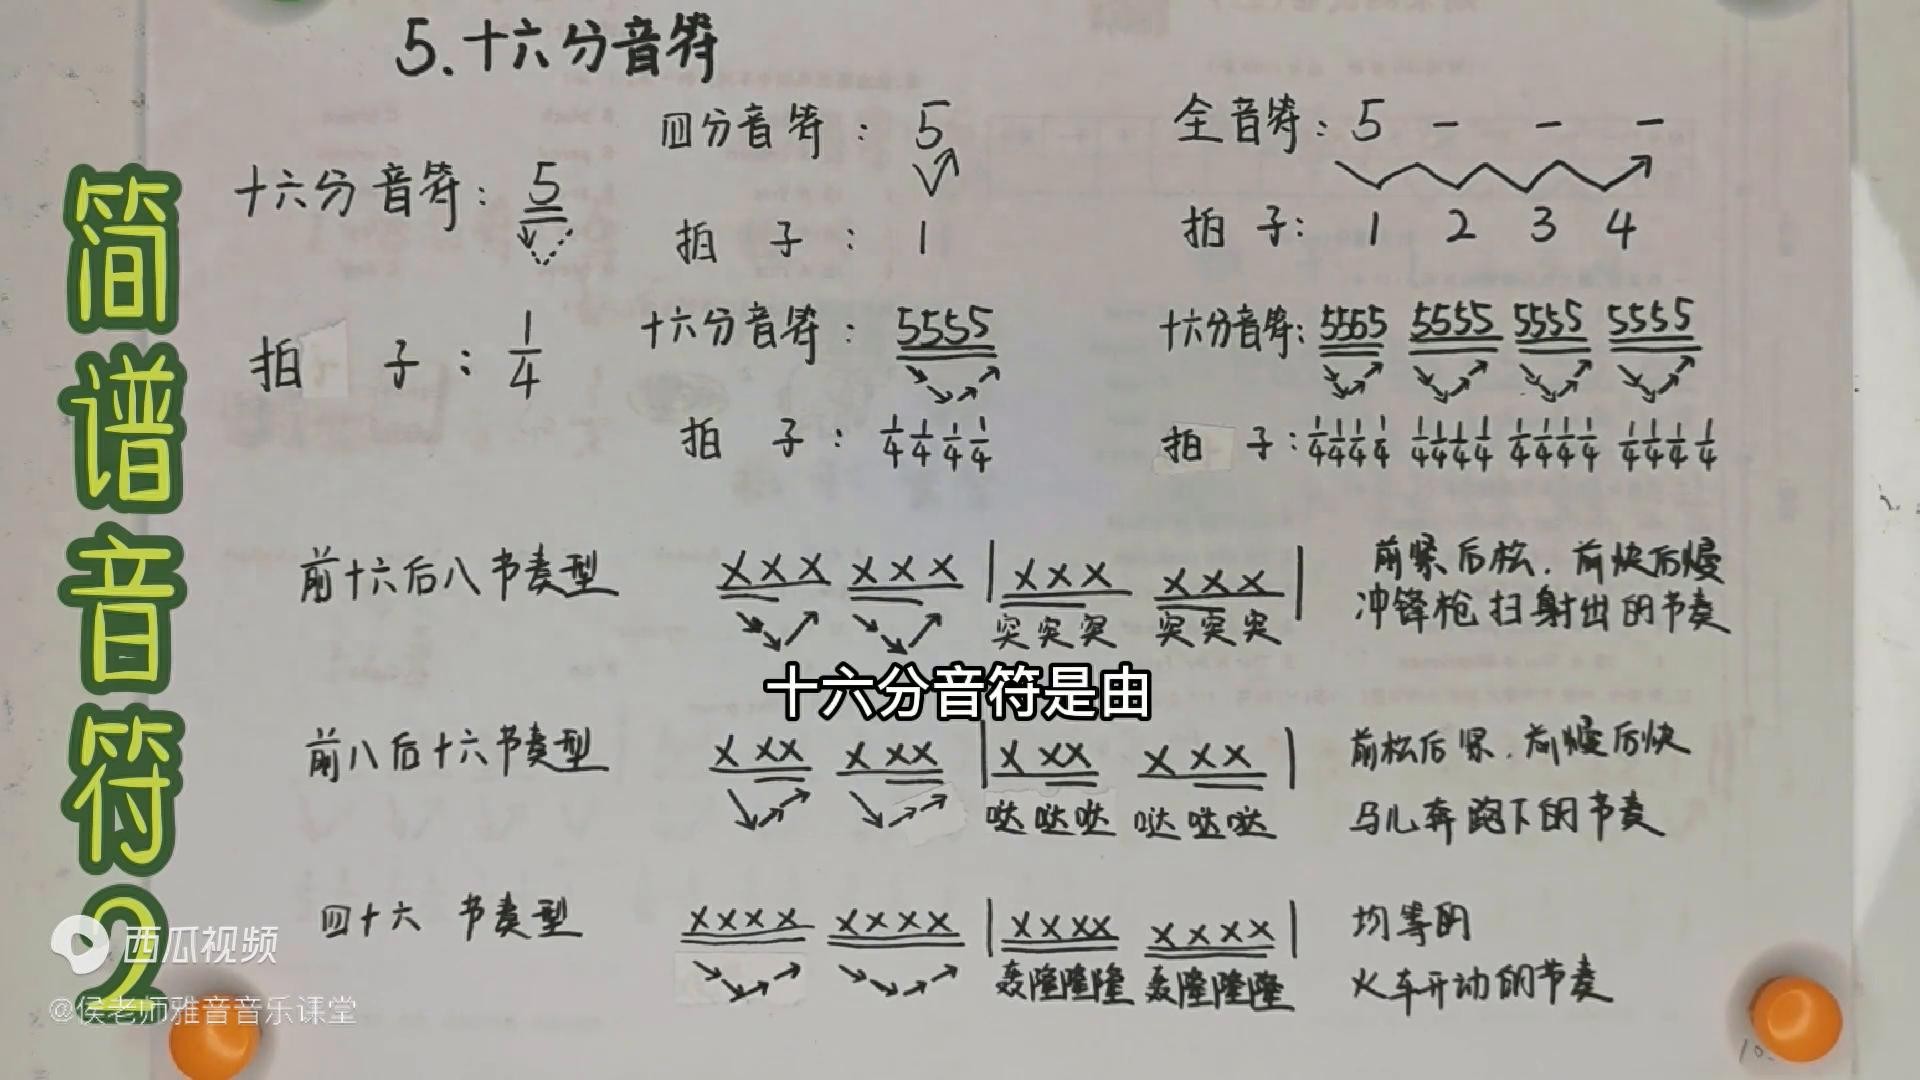 5.十六分音符
十六分音符：5
拍子：1/4
四分音符：5
拍子：1
十六分音符：5555
拍子：1/4 1/4 1/4 1/4
全音符：5 - - -
拍子：1 2 3 4
十六分音符：5565 5555 5555 5555
拍子：1/4 1/4 1/4 1/4 1/4 1/4 1/4 1/4 1/4 1/4 1/4 1/4 1/4 1/4 1/4 1/4
前十六后八节奏型 XXX XXX | XXX XXX |
突突突 突突突
前紧后松．前快后慢
冲锋枪扫射出的节奏
十六分音符是由
前八后十六节奏型 X XX X XX | X XX X XX |
哒哒哒 哒哒哒
前松后紧．前慢后快
马儿奔跑下的节奏
四十六 节奏型 XXXX XXXX | XXXX XXXX |
轰隆隆隆 轰隆隆隆
均等的
火车开动的节奏
简谱音符2
西瓜视频
@侯老师雅音音乐课堂